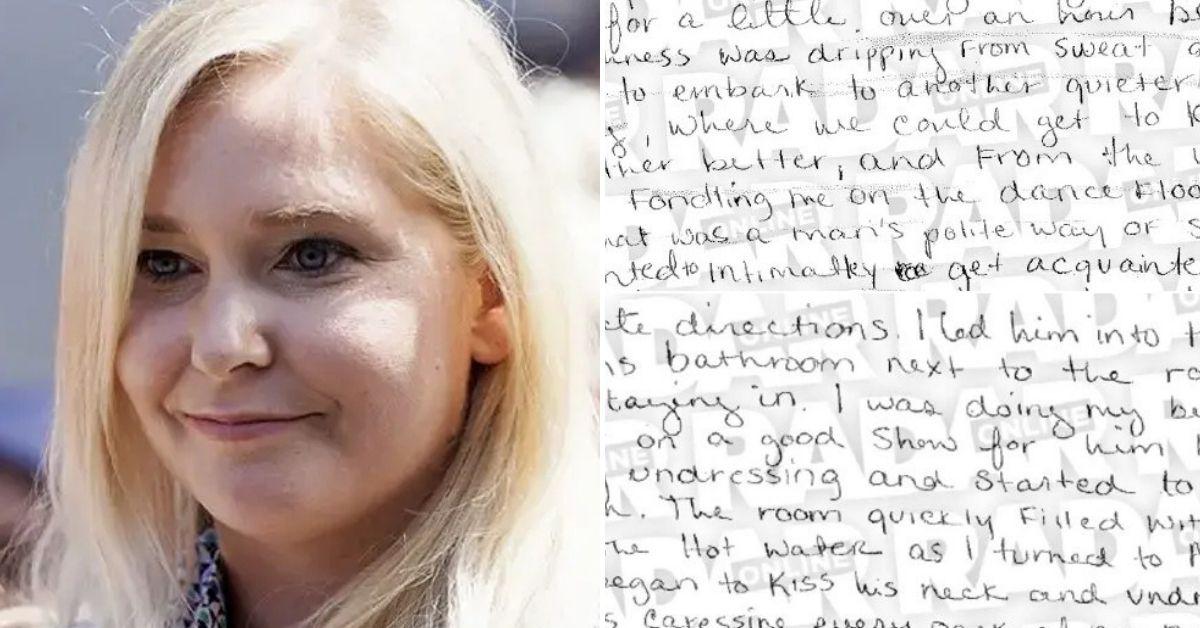 for a little over an hour be
ness was dripping From sweat a
to embark to another quieter
, where we could get to K
ther better, and From the
Fondling me on the dance Floo
hat was a man's polite way of S
nted to intimatley get acquainte
te directions. I led him into t
is bathroom next to the ro
taying in. I was doing my be
on a good show for him
undressing and started to
h. The room quickly Filled wit
he Hot water as I turned to
egan to Kiss his neck and undr
s caressing every
RADAR
ONLINE